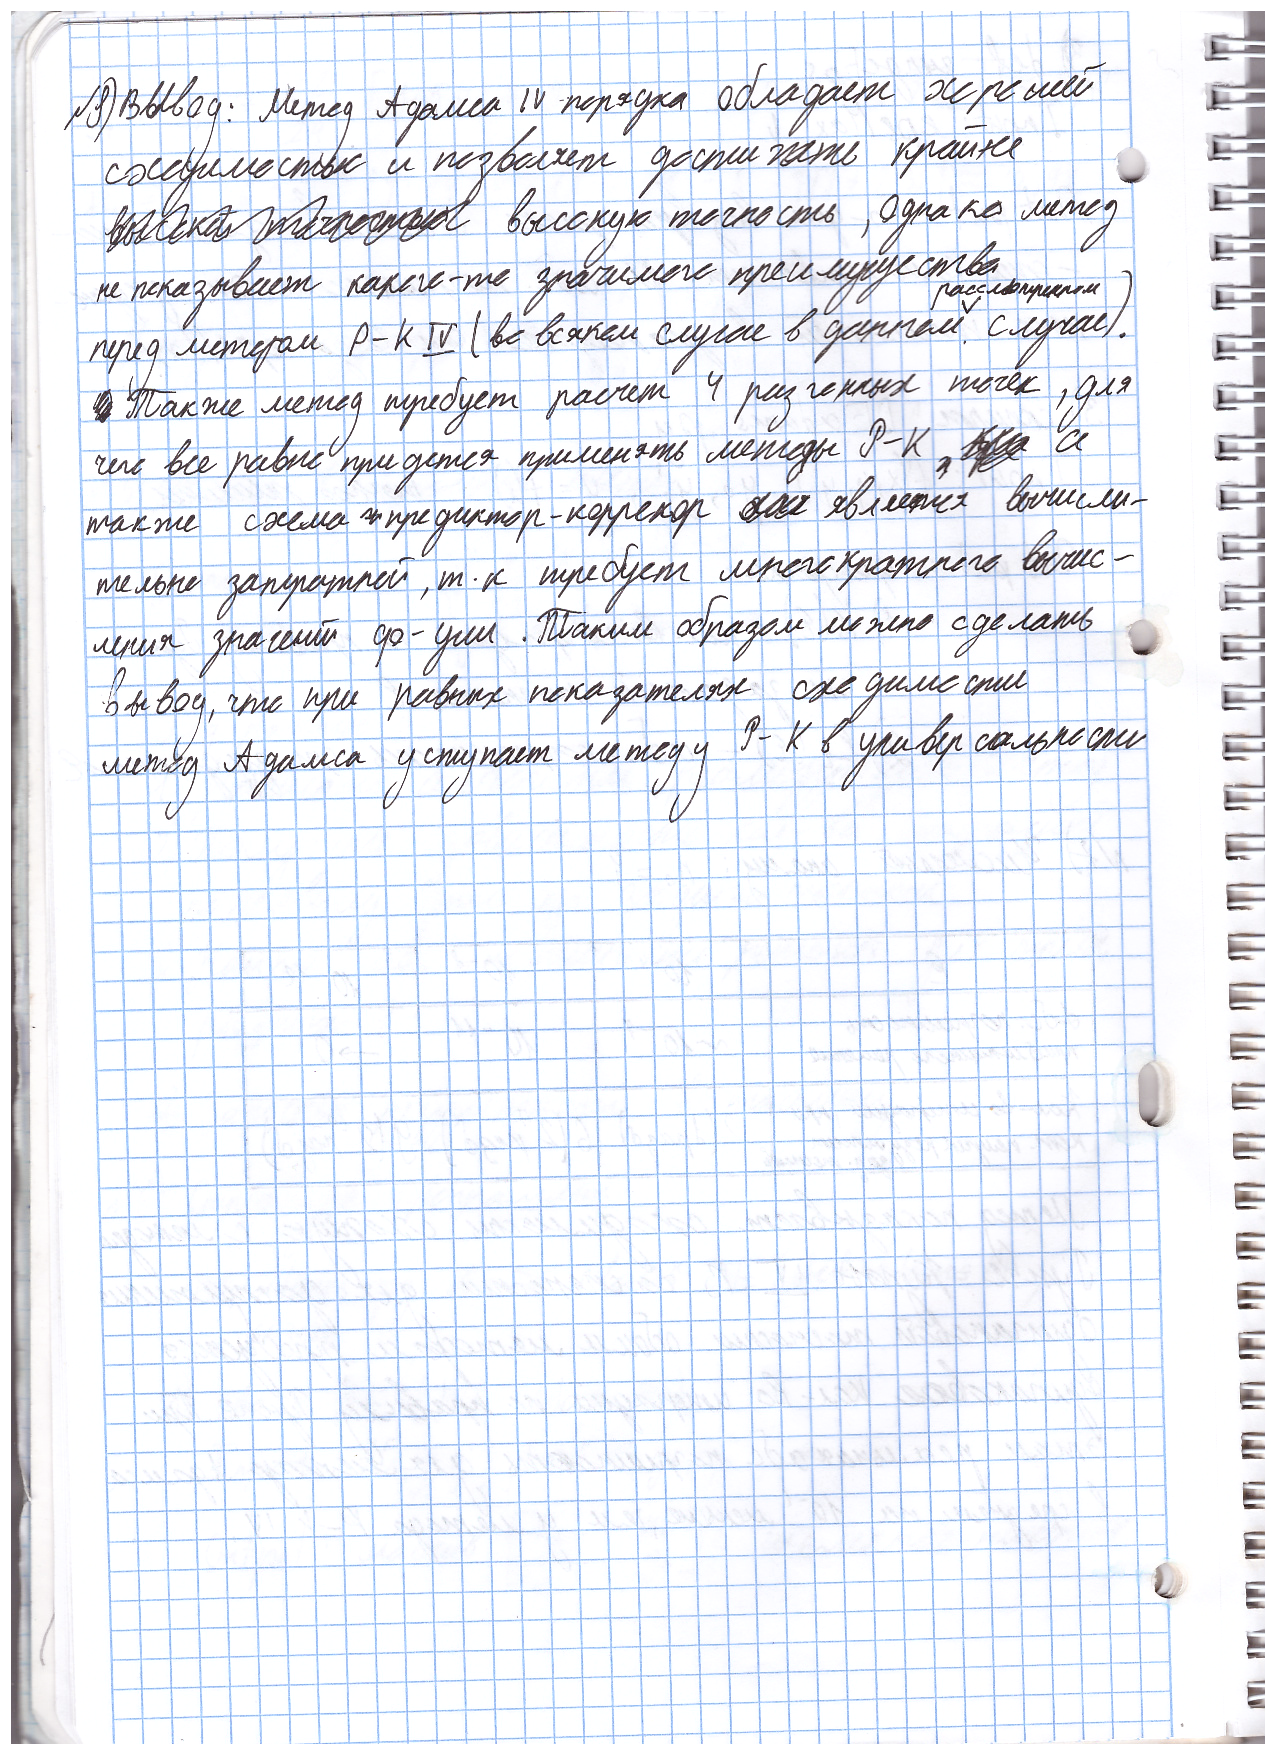 №9) Вывод: Метод Адамса IV порядка обладает хорошей
сходимостью и позволяет достигать крайне
высокую точность, однако метод
не показывает какого-то значимого преимущества
перед методом Р-К IV (во всяком случае в данном рассмотренном случае).
Также метод требует расчет 4 разгонных точек, для
чего все равно придется применять методы Р-К, а
также схема предиктор-коррекор является вычисли-
тельно затратной, т.к требует многократного вычис-
ления значений ф-уии. Таким образом можно сделать
вывод, что при равных показателях сходимости
метод Адамса уступает методу Р-К в универсальности